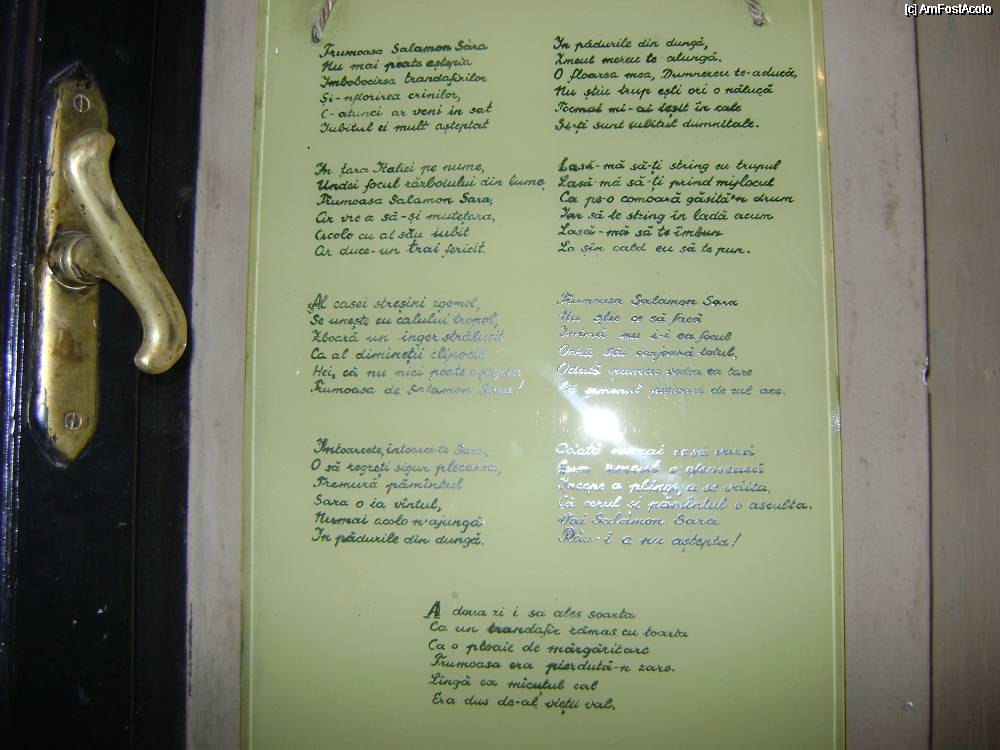 [c] AmFostAcolo
Frumoasa Salamon Sára
Nu mai poate aștepta
Imbobocirea trandafirilor,
Și-nflorirea crinilor,
C-atunci ar veni in sat
Iubitul ei mult așteptat
In țara Italiei pe nume,
Undei focul războiului din lume,
Frumoasa Salamon Sara,
Ar vrea să-și mutețara,
Acolo cu al său iubit
Ar duce-un trai fericit.
Al casei streșini zgomot,
Se unește cu calului tropot,
Zboară un inger strălucit
Ca al dimineții clipocit
Hei, că nu nici poate aștepta
Frumoasa de Salamon Sara!
Intoarcete, intoarce-te Sara,
O să regreți sigur plecarea,
Tremură pămîntul
Sara o ia vîntul,
Numai acolo n'ajungă
In pădurile din dungă.
In pădurile din dungă,
Zmeul mereu te alungă.
O floarea mea, Dumnezeu te-aducă,
Nu știu trup ești ori o nălucă
Tocmai mi-ai ieșit în cale
Si-ți sunt iubitul dumnitale.
Lasă-mă să-ți string cu trupul
Lasă-mă să-ți prind mijlocul
Ca pe-o comoară găsită'n drum
Iar să te string in ladă acum
Lasă-mă să te îmbun
La sin cald eu să te pun.
Frumoasa Salamon Sara
Nu știe ce să facă
Inimă nu i-i ca focul
Ochii să cojoară totul,
Odată numai vedea ea tare
Că zmenul picioare de cal are.
Odată numai ce să vară
Cum zmeul o
Incepe a plînge, a se văita,
Că cerul și pămîntul o asculta.
Vai Salamon Sara
Rău-i a nu aștepta!
A doua zi i sa ales soarta
Ca un trandafir rămas cu toarta
Ca o ploaie de mărgăritare
Frumoasa era pierdută-n zare.
Lîngă ea micuțul cal
Era dus de-al vieții val.